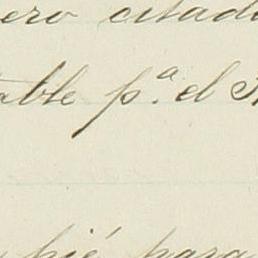 ero citad
able p.ª el
pié para